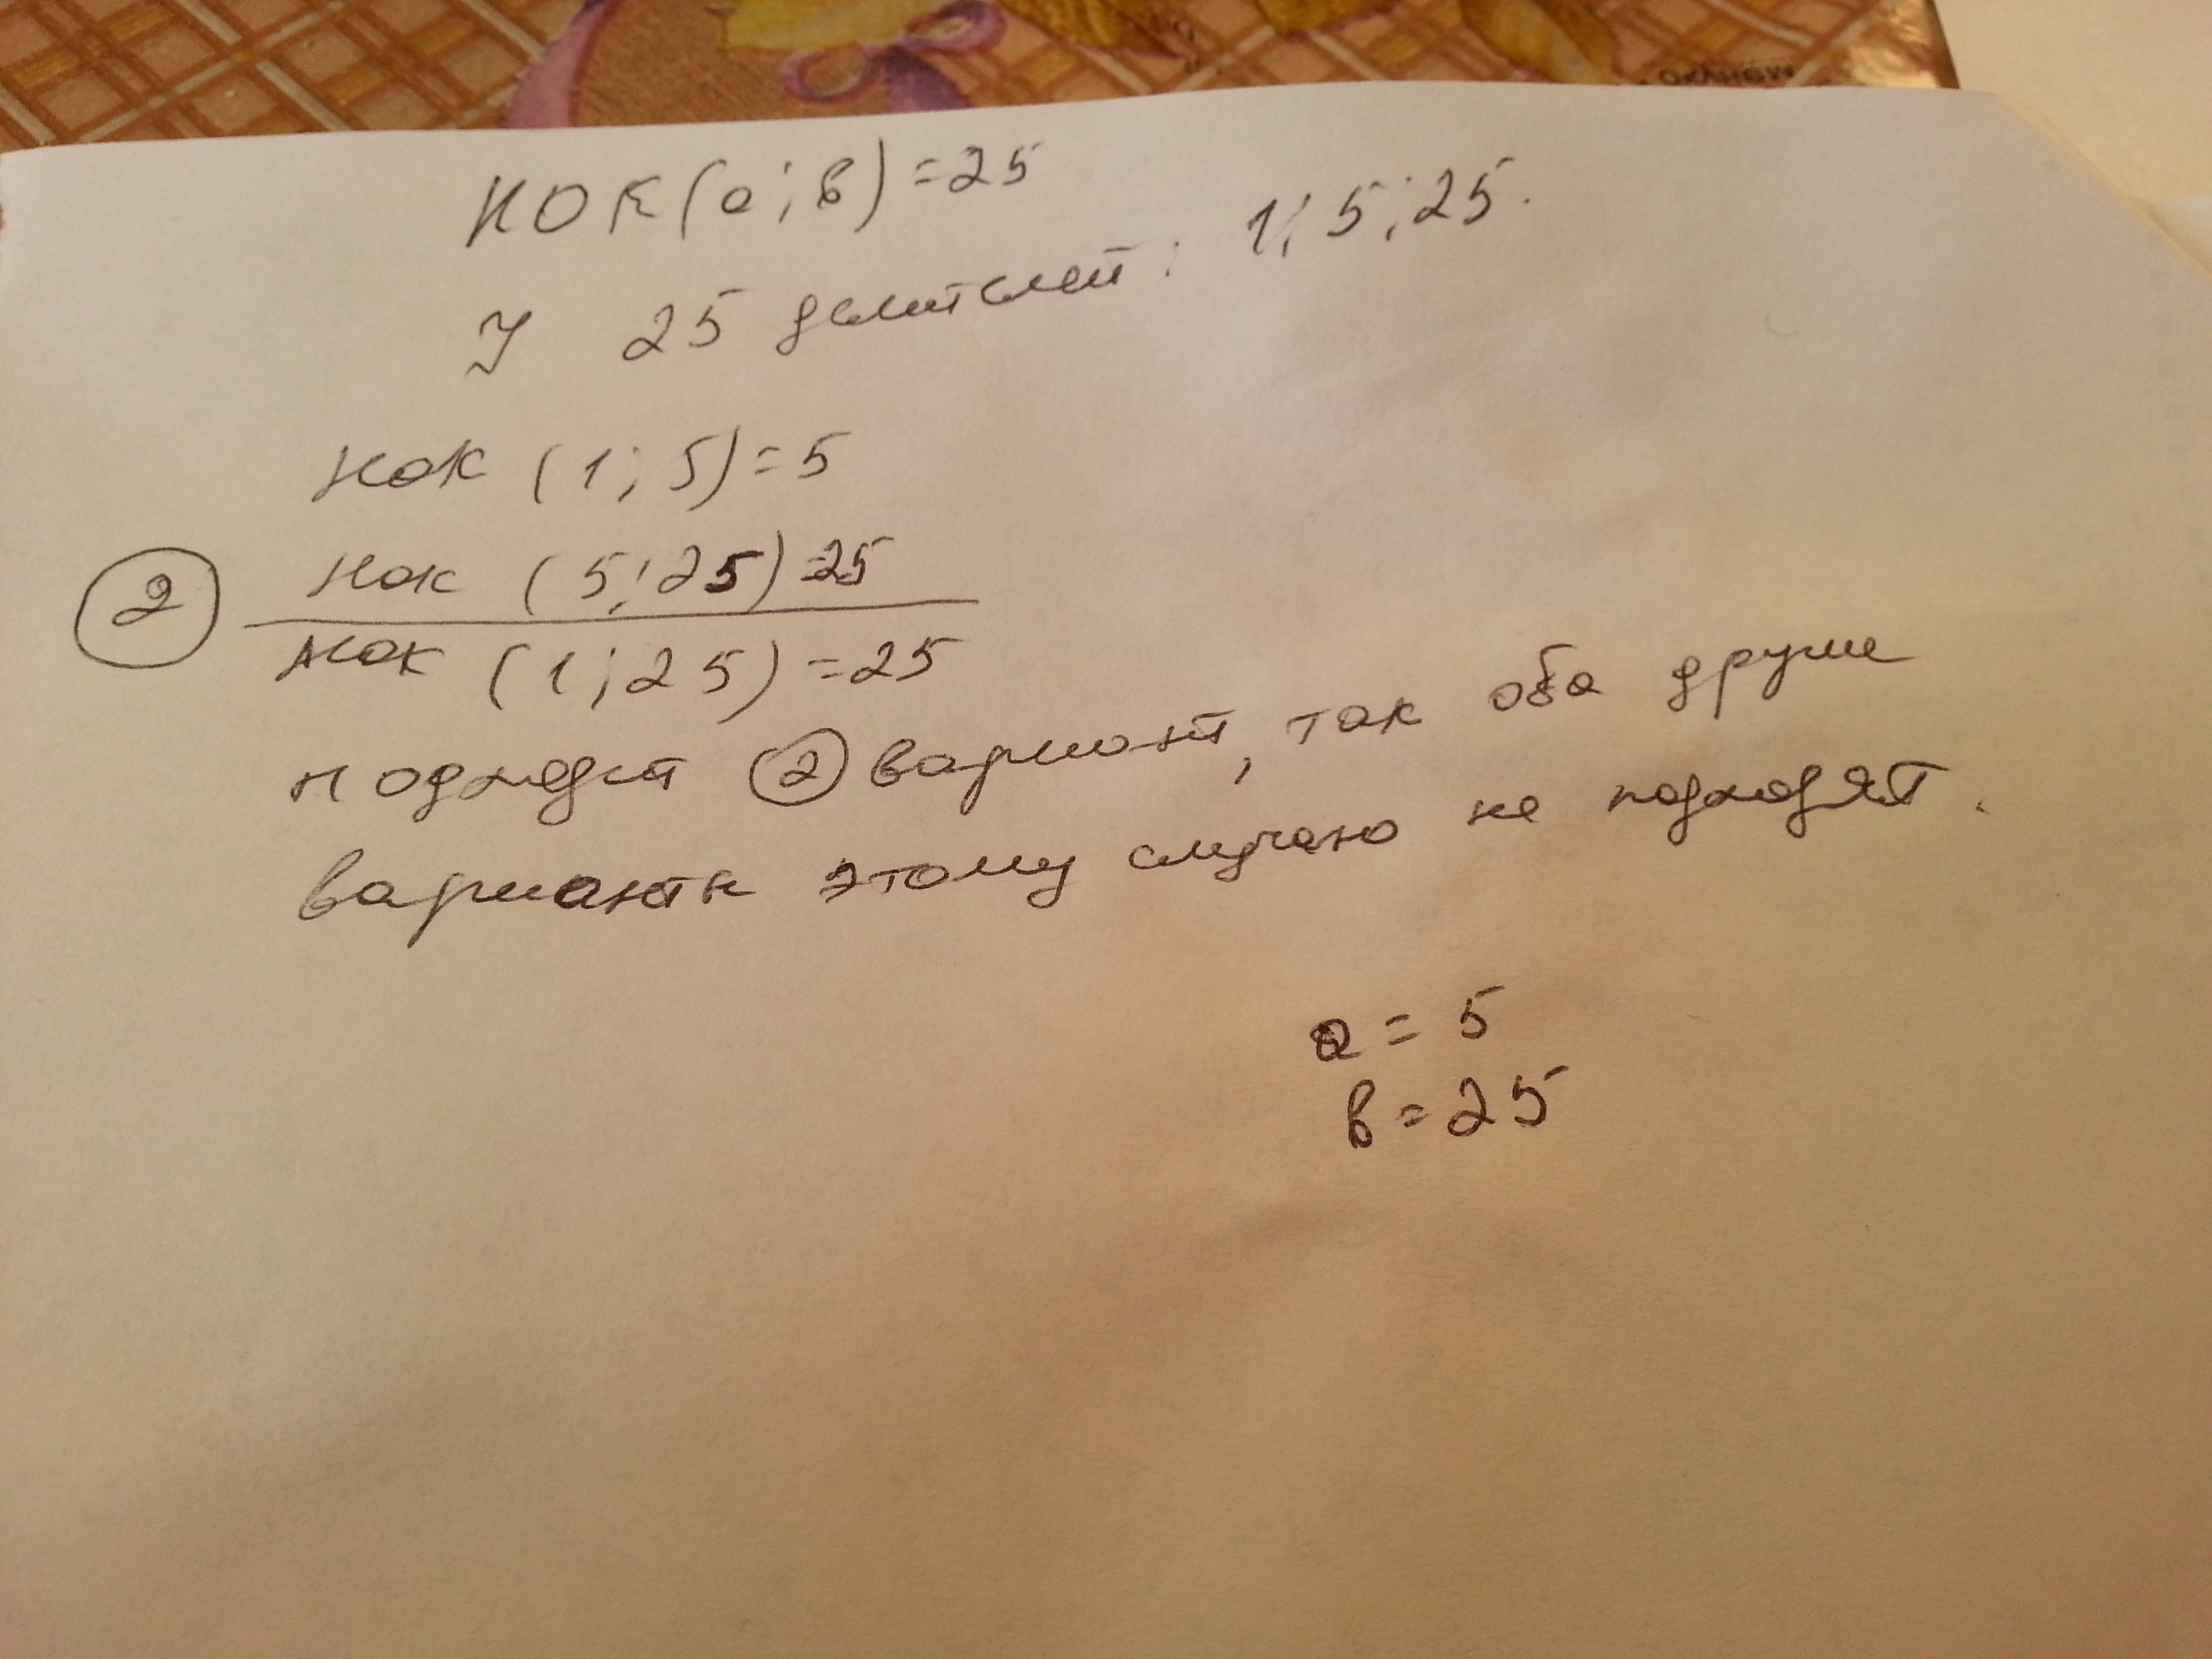 НОК (а; в) = 25
У 25 делителей: 1; 5; 25.
НОК (1; 5) = 5
2 НОК (5; 25) = 25
НОК (1; 25) = 25
подходит 2 вариант, так оба другие
варианты этому случаю не подходят.
а = 5
в = 25